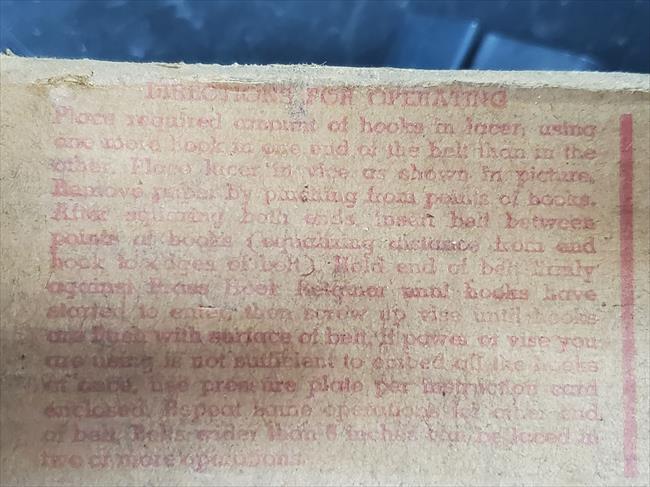 DIRECTIONS FOR OPERATING
Place required amount of hooks in lacer, using
one more hook in one end of the belt than in the
other. Place lacer in vice as shown in picture.
Remove paper by pushing from points of hooks.
After squaring both ends, insert belt between
points of hooks (equalizing distance from end
hook to edges of belt). Hold end of belt firmly
against Brass Hook Retainer until hooks have
started to enter, then screw up vise until hooks
are flush with surface of belt. If power of vise you
are using is not sufficient to embed all the hooks
at once, use pressure plate per instruction card
enclosed. Repeat same operations for other end
of belt. Belts wider than 6 inches can be laced in
two or more operations.